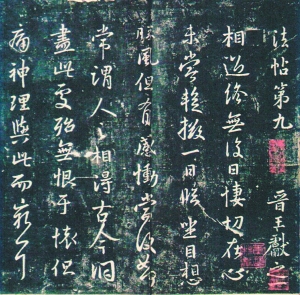 法帖第九 晉王獻之
相過終無復日悽切在心
未嘗暫掇一日臨坐目想
勝風但有感慟當復如何
常謂人之相得古今洞
盡此處殆無恨于懷但
痛神理與此而窮耳